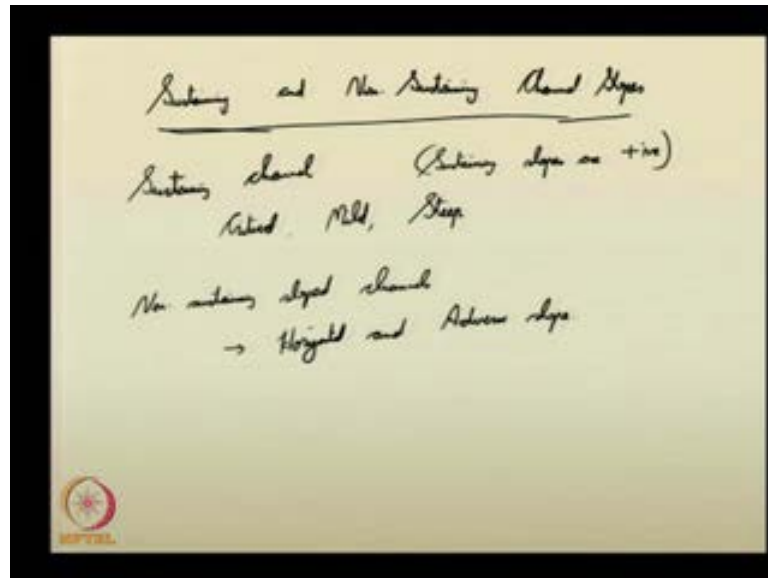 Sustaining and Non-Sustaining Channel Slopes
Sustaining channel (Sustaining slopes are +ive)
Critical, Mild, Steep
Non-sustaining sloped channels
→ Horizontal and Adverse slope.
NPTEL